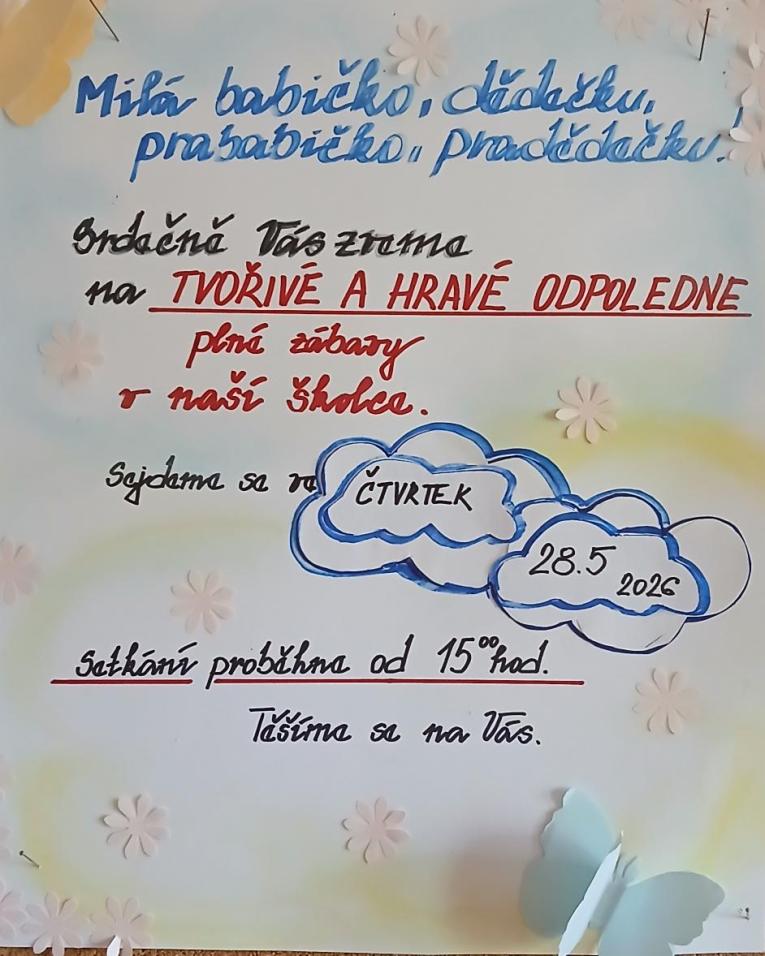 Milá babičko, dědečku,
prababičko, pradědečku!
Srdečně Vás zveme
na TVOŘIVÉ A HRAVÉ ODPOLEDNE
plné zábavy
v naší školce.
Sejdeme se ve ČTVRTEK
28.5 2026
Setkání proběhne od 15⁰⁰ hod.
Těšíme se na Vás.